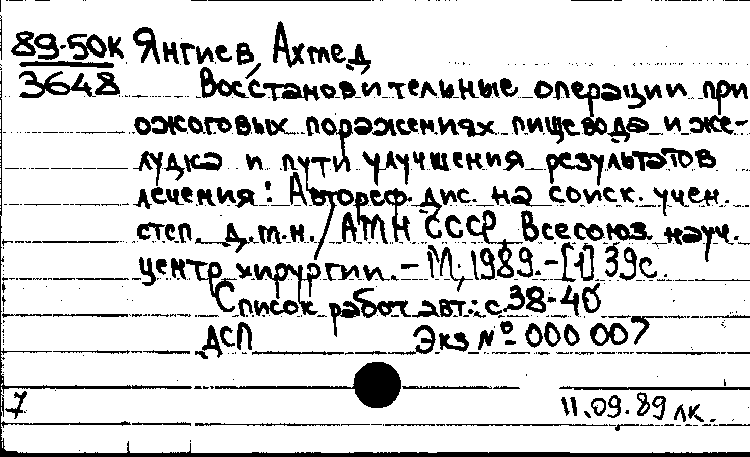 89-50К Янгиев, Ахмед
3648 Восстановительные операции при
ожоговых поражениях пищевода и же-
лудка и пути улучшения результатов
лечения: Автореф. дис. на соиск. учен.
степ. д.м.н. / АМН СССР, Всесоюз. науч.
центр хирургии. - М., 1989. - [1] 39 с.
Список работ авт.: с. 38-40
ДСП Экз № 000 007
7 11.09.89 лк.